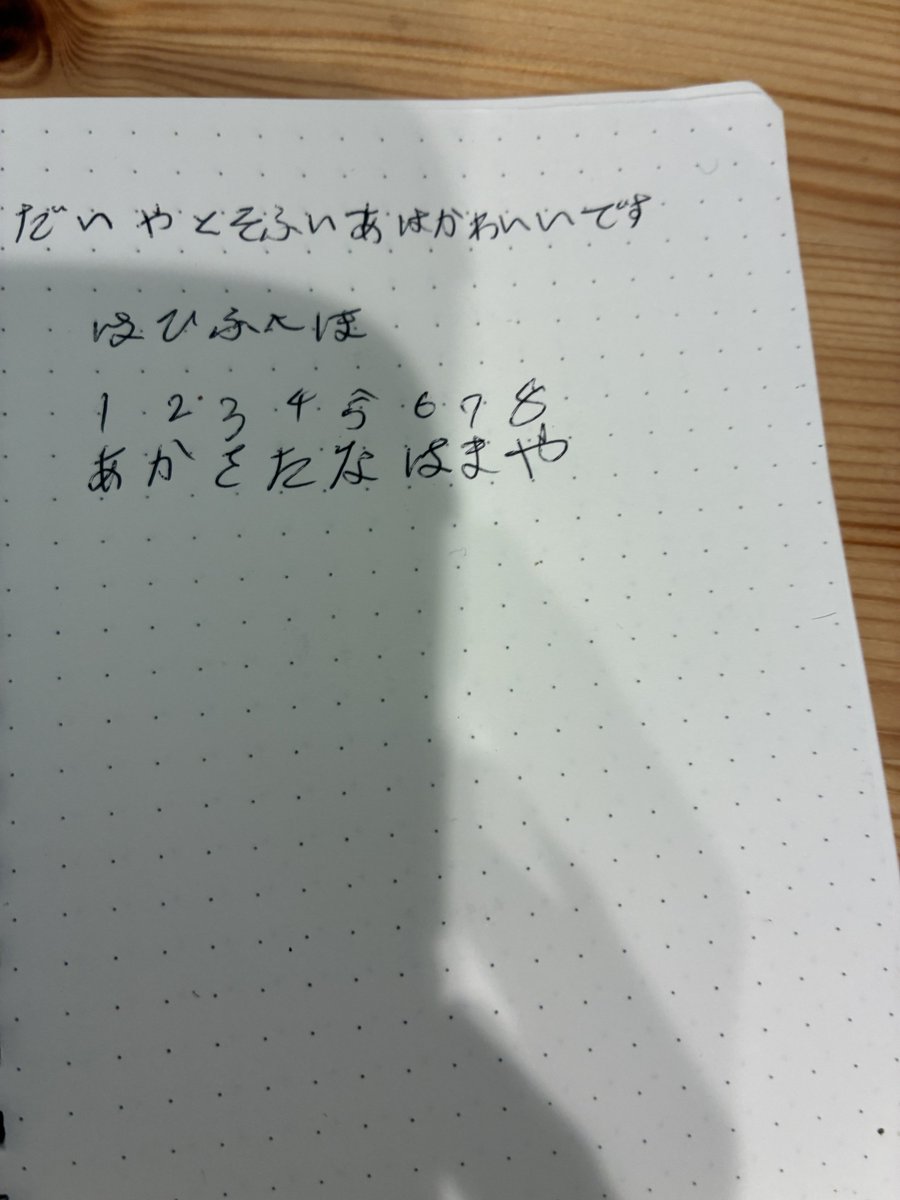 だいやとそふいあはかわいいです
はひふへほ
1 2 3 4 5 6 7 8
あかさたなはまや